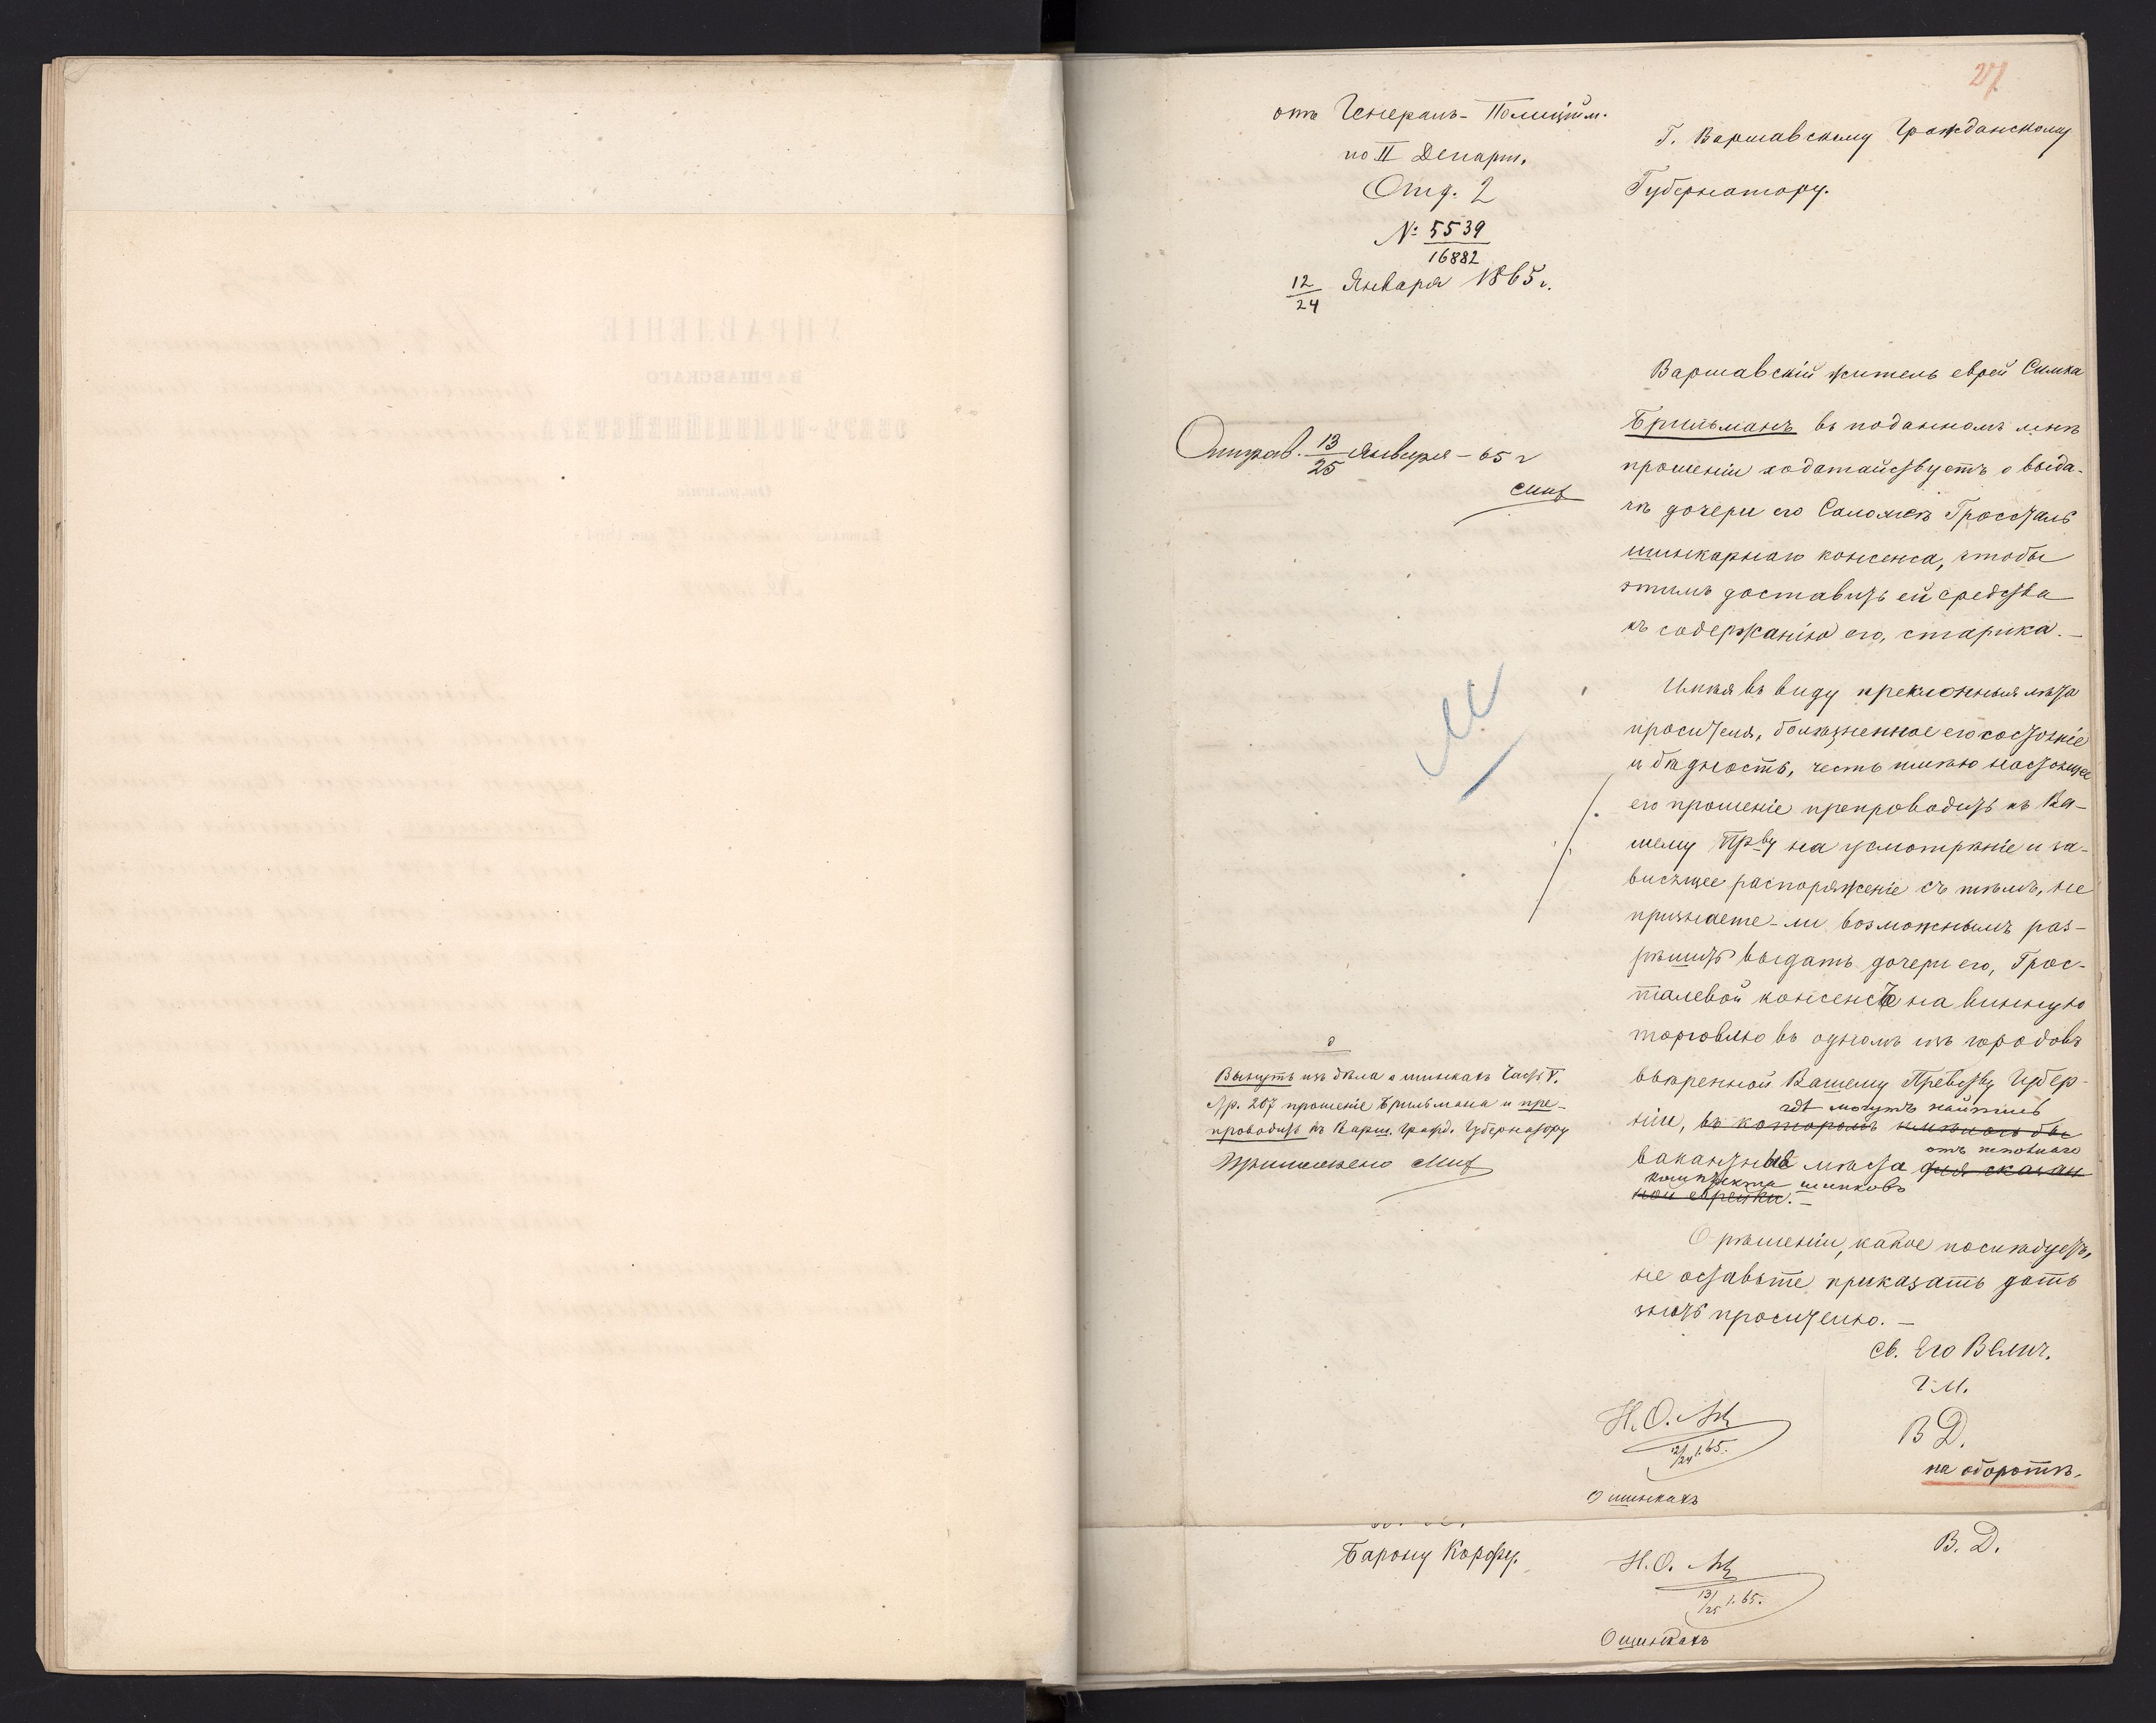 27
отъ Генералъ-Полицейм.
по II Департ.
Отд. 2
№ 5539
16882
12/24 Января 1865 г.
Г. Варшавскому Гражданскому
Губернатору.
Отправ. 13/25 Января - 65 г
Варшавскій житель еврей Симка
Брильманъ въ поданномъ мнѣ
прошеніи ходатайствуетъ о выда-
чѣ дочери его Саломеѣ Гроссталь
шинкарнаго консенса, чтобы
этимъ доставить ей средства
къ содержанію его, старика. —
Имѣя въ виду преклонныя лѣта
просителя, болѣзненное его состояніе
и бѣдность, честь имѣю настоящее
его прошеніе препроводить къ Ва-
шему Пр-ву на усмотрѣніе и за-
висящее распоряженіе съ тѣмъ, не
признаете-ли возможнымъ раз-
рѣшить выдать дочери его, Грос-
талевой консенсъ на винную
торговлю въ одномъ изъ городовъ
ввѣренной Вашему Превству Губер-
гдѣ могутъ найтись
ніи, въ которомъ имѣлось бы
отъ штатнаго
вакантныя мѣста для сказан
комплекта шинковъ
ной еврейки. —
О рѣшеніи, какое послѣдуетъ,
не оставьте приказать дать
знать просителю. —
Св. Его Велич.
Г. М.
В Д.
на оборотѣ.
Вынуть изъ дѣла о шинкахъ Часть V.
стр. 207 прошеніе Брильмана и пре-
проводить къ Варш. Гражд. Губернатору
Приложено
Н. О.
12/24 1. 65.
О шинкахъ
Барону Корфу.
Н. О.
13/25 1. 65.
В. Д.
О шинкахъ
УПРАВЛЕНІЕ
ВАРШАВСКАГО
ОБЕРЪ-ПОЛИЦІЙМЕЙСТЕРА